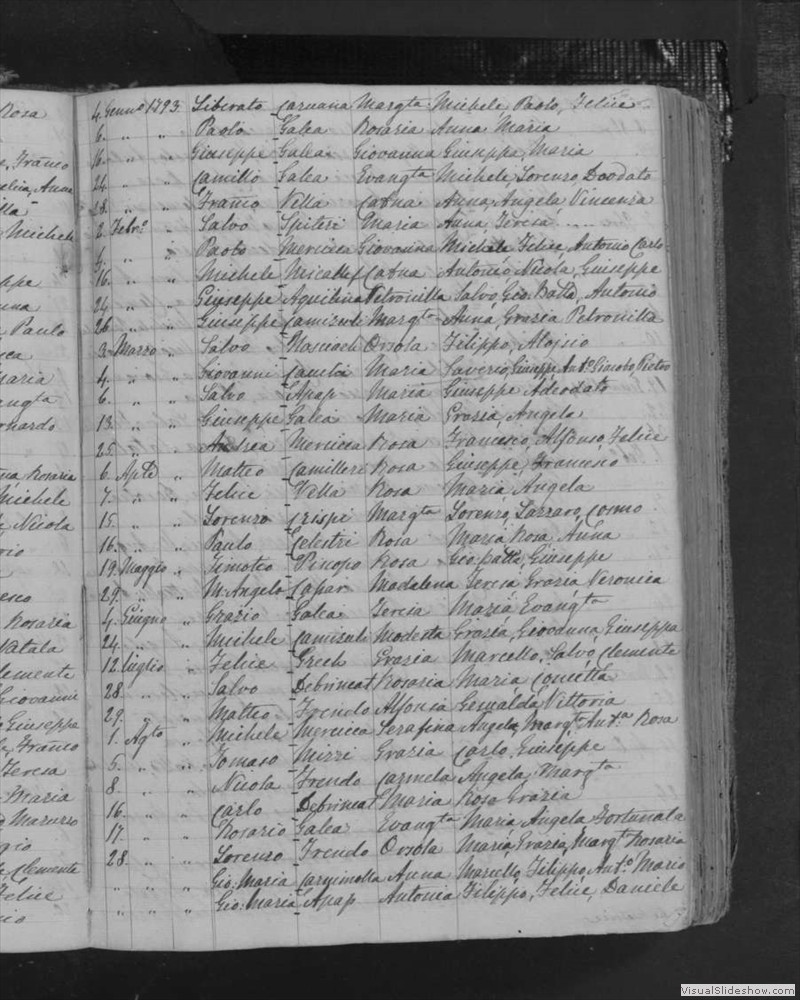 Rosa
Franco
Michele
Paulo
Maria
Rosaria
Michele
Nicola
Rosaria
Natala
Clemente
Giovanni
Giuseppe
Franco
Teresa
Maria
Clemente
Felice
4 Genn.o 1793 Liberato Caruana Margta Michele, Paolo, Felice
6 " " Paolo Galea Rosaria Anna Maria
16 " " Giuseppe Galea Giovanna Giuseppa, Maria
24 " " Camillo Galea Evangta Michele Lorenzo, Deodato
28 " " Franco Vella Catna Anna, Angela, Vincenza
2 Febr.o " Salvo Spiteri Maria Anna, Teresa
4 " " Paolo Mercieca Giovanna Michele, Felice, Antonio Carlo
16 " " Michele Micallef Catna Antonio Nicola, Giuseppe
24 " " Giuseppe Aquilina Petronilla Salvo, Gio: Batta, Antonio
26 " " Giuseppe Camizuli Margta Anna, Grazia Petronilla
3 Marzo " Salvo Orsola Filippo, Aloisio
4 " " Giovanni Maria Saverio, Giuseppe Ant.o Giacobo Pietro
6 " " Salvo Apap Maria Giuseppe Adeodato
13 " " Giuseppe Galea Maria Grazia, Angela
25 " " Andrea Mercieca Rosa Francesco, Alfonso, Felice
6 Aple " Matteo Camilleri Rosa Giuseppe, Francesco
7 " " Felice Vella Rosa Maria Angela
15 " " Lorenzo Crispi Margta Lorenzo, Lazzaro, Cosmo
16 " " Paulo Celestri Rosa Maria Rosa, Anna
19 Maggio " Timoteo Piscopo Rosa Gio: Batta, Giuseppe
29 " " M: Angelo Capar Madalena Teresa Grazia Veronica
4 Giugno " Grazio Galea Teresa Maria Evangta
24 " " Michele Camizuli Modesta Grazia, Giovanna, Giuseppa
12 Luglio " Felice Grech Grazia Marcello, Salvo, Clemente
28 " " Salvo Debrincat Rosaria Maria Concetta
29 " " Matteo Frendo Alfonsa Geswalda Vittoria
1 Agto " Michele Mercieca Serafina Angela, Margta Ant.a Rosa
5 " " Tomaso Mizzi Grazia Carlo, Giuseppe
8 " " Nicola Frendo Carmela Angela, Margta
16 " " Carlo Debrincat Maria Rosa Grazia
17 " " Rosario Galea Evangta Maria Angela Fortunata
28 " " Lorenzo Frendo Orsola Maria, Grazia, Margta Rosaria
" " " Gio: Maria Anna Marcello, Filippo, Ant.o Mario
" " " Gio: Maria Apap Antonia Filippo, Felice, Daniele
VisualSlideshow.com